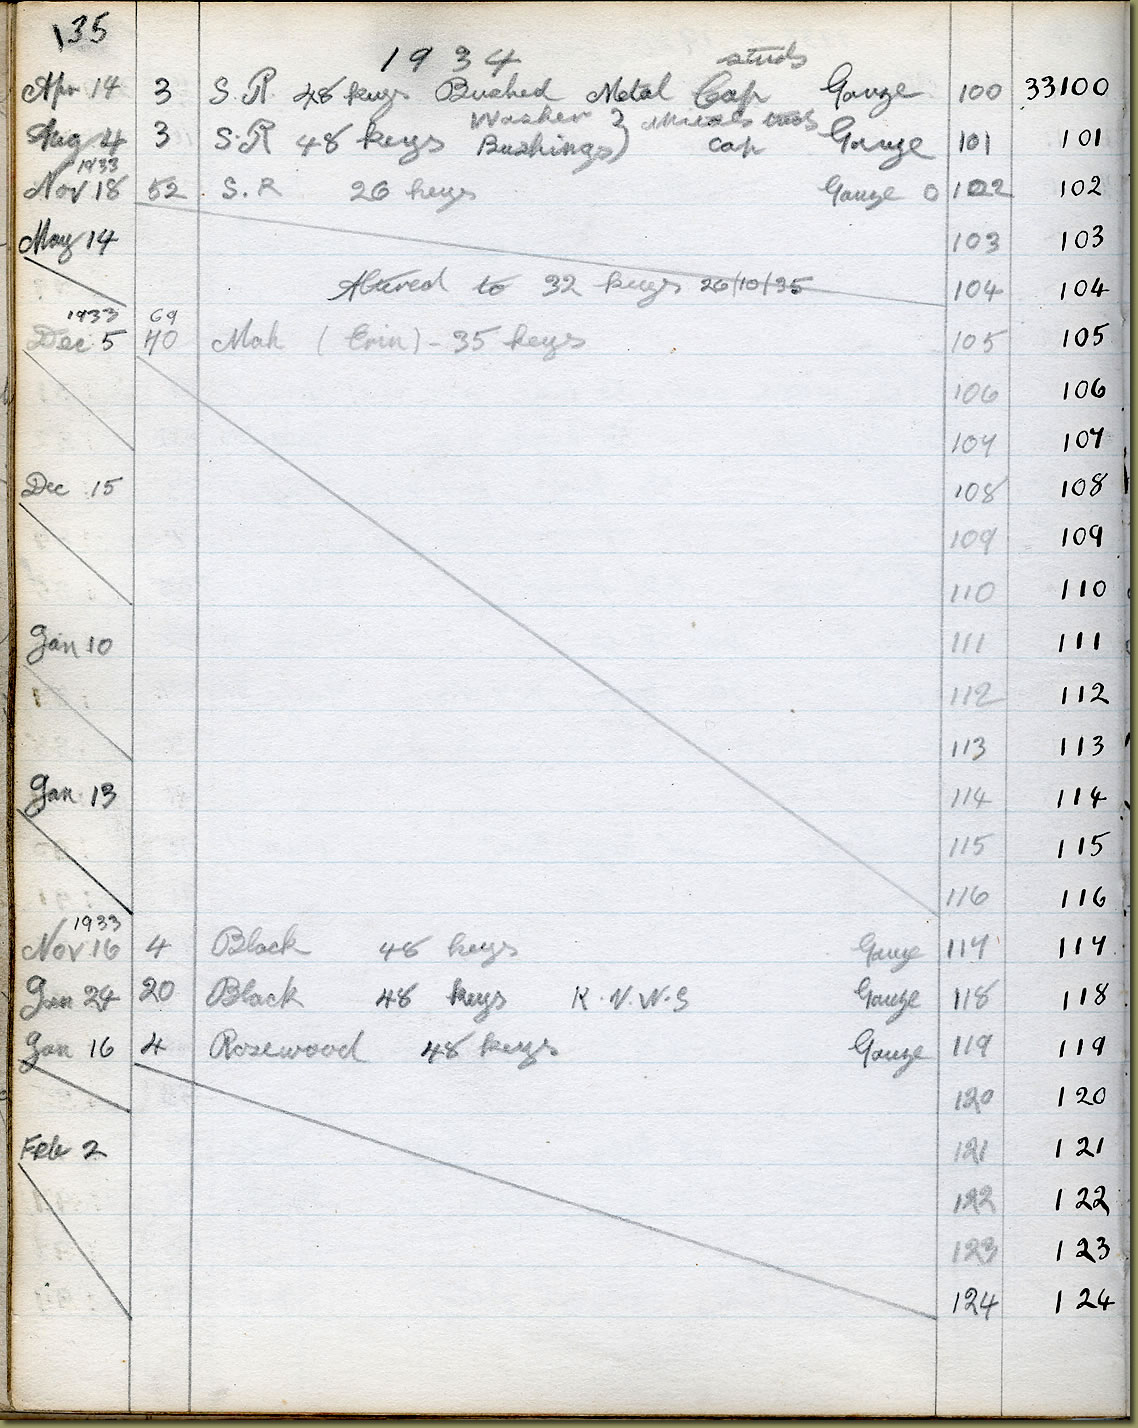 135
1934
studs
Apr 14 3 S.R. 48 keys Bushed Metal Cap Gauge 100 33100
Washer &
Aug 4 3 S.R 48 keys Bushings) cap Gauge 101 101
1933
Nov 18 52 S.R 26 keys Gauge 0 102 102
May 14 103 103
Altered to 32 keys 26/10/35 104 104
1933 69
Dec 5 70 Mah (Erin) - 35 keys 105 105
106 106
107 107
Dec 15 108 108
109 109
110 110
Jan 10 111 111
112 112
113 113
Jan 13 114 114
115 115
116 116
1933
Nov 16 4 Black 48 keys Gauge 117 117
Jan 24 20 Black 48 keys K.N.W.S Gauge 118 118
Jan 16 4 Rosewood 48 keys Gauge 119 119
120 120
Feb 2 121 121
122 122
123 123
124 124